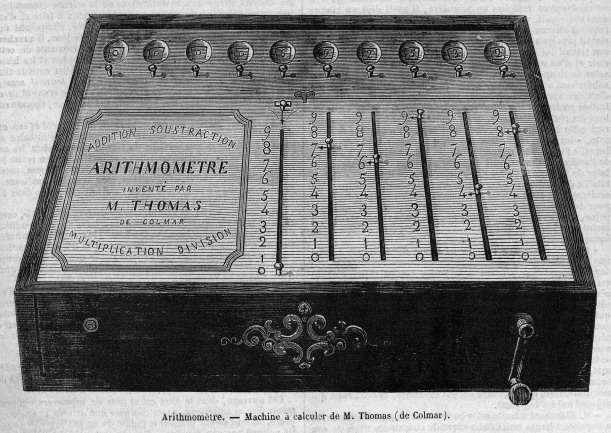 ADDITION SOUSTRACTION
ARITHMOMETRE
INVENTÉ PAR
M. THOMAS
DE COLMAR
MULTIPLICATION DIVISION
9 9 9 9 9 9
8 8 8 8 8 8
7 7 7 7 7 7
6 6 6 6 6 6
5 5 5 5 5 5
4 4 4 4 4 4
3 3 3 3 3 3
2 2 2 2 2 2
1 1 1 1 1 1
0 0 0 0 0 0
Arithmomètre. — Machine à calculer de M. Thomas (de Colmar).